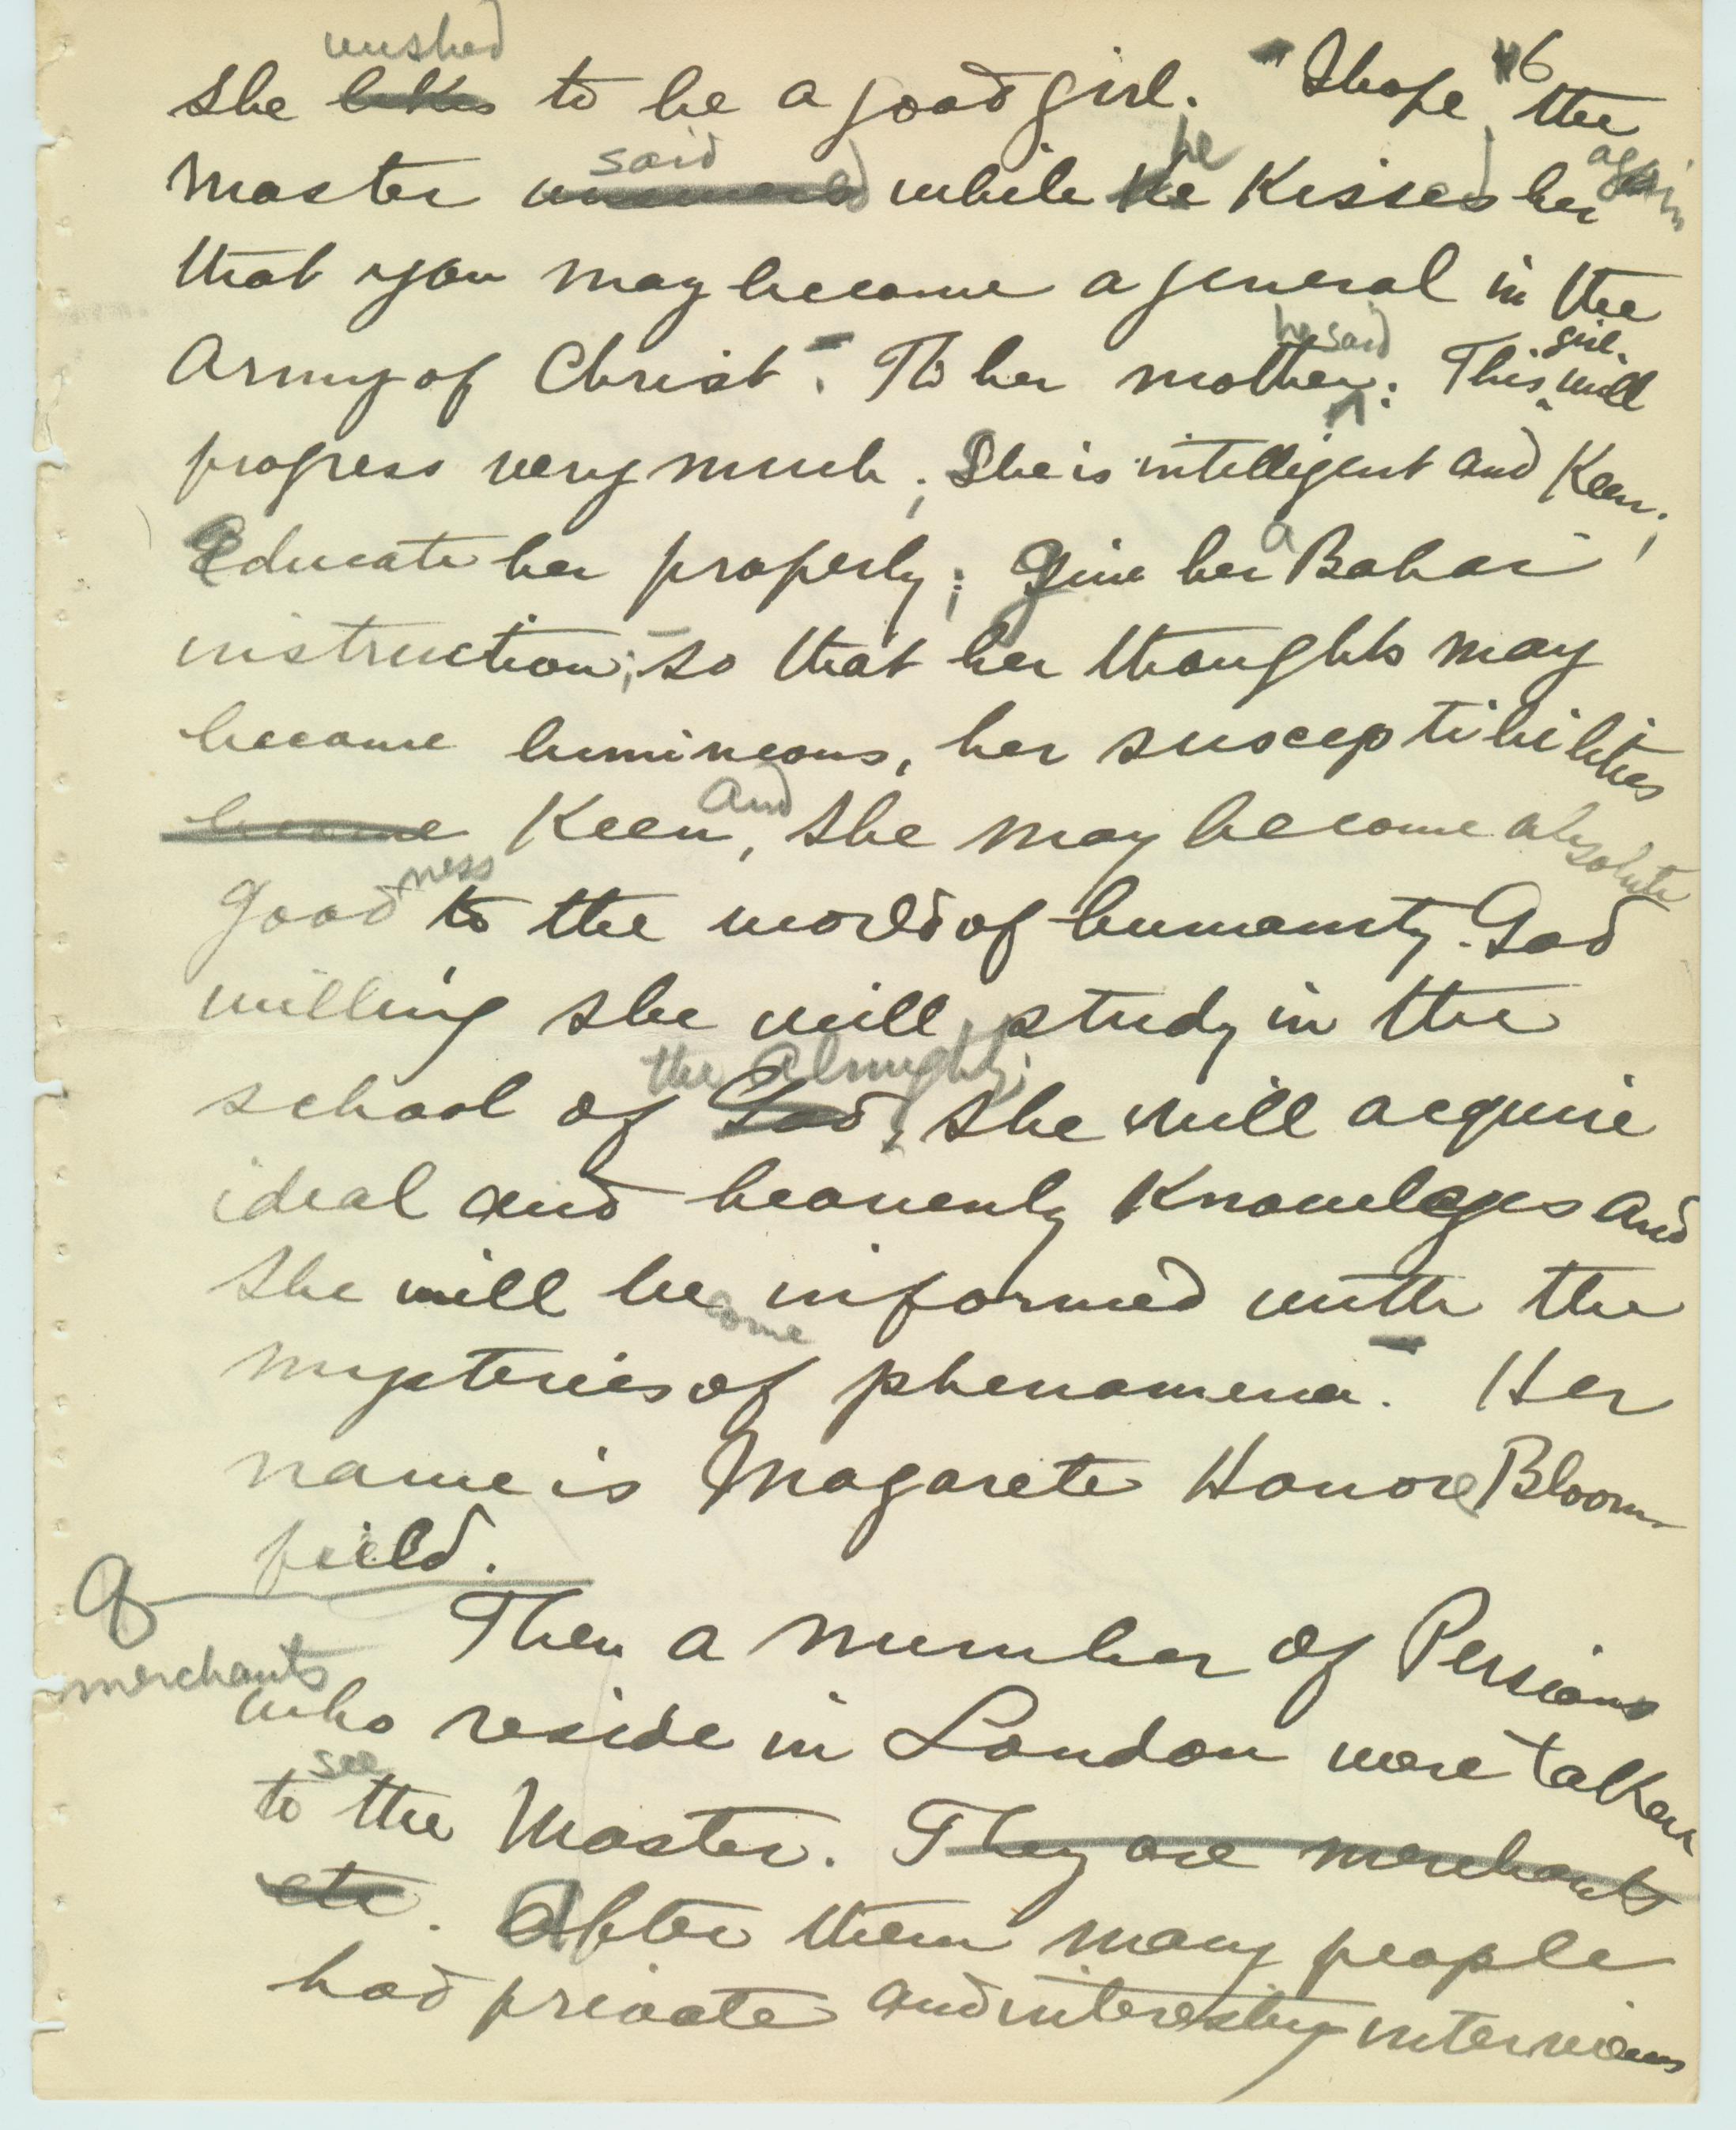 46
wished
she likes to be a good girl. "I hope, the
said he again
Master answered while He Kissed her
that you may become a general in the
he said girl
Army of Christ". To her mother: This will
progress very much; She is intelligent and Keen;
a
Educate her properly; Give her Bahai
instruction; so that her thoughts may
become lumineous, her susceptibilities
and
become Keen, she may become absolute
ness
good to the world of humanity. God
willing she will study in the
the Almighty;
school of God, she will acquire
ideal and heavenly Knowledges and
She will be informed with the
come
mysteries of phenomena." Her
name is Magarete Honore Bloom-
field.
Then a number of Persians
merchants
who reside in London were talken
see
to the Master. They are merchants
etc. After them many people
had private and interesting interviews